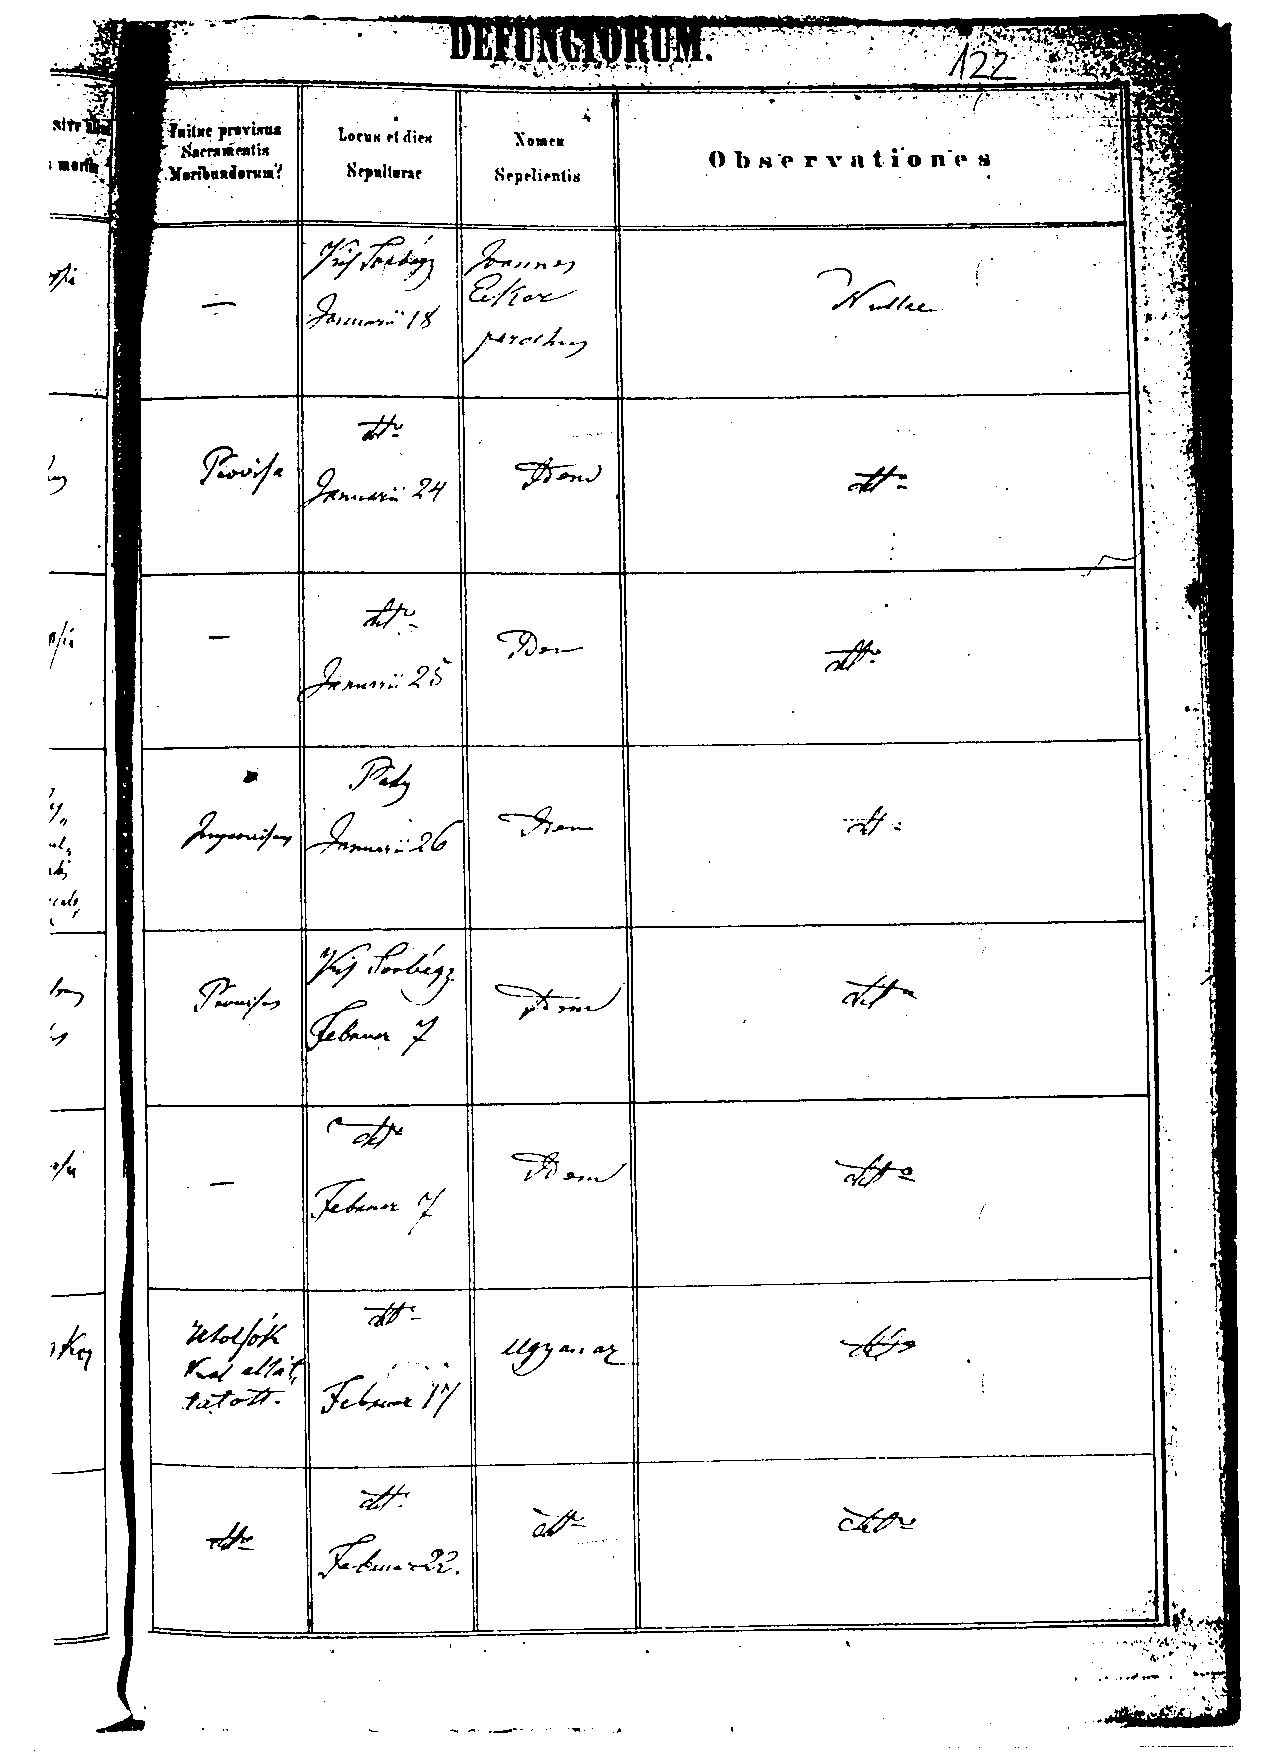 DEFUNCTORUM.
122
Fuitne provisus
Sacramentis
Moribundorum?
Locus et dies
Sepulturae
Nomen
Sepelientis
Observationes
—
Kis Torbágy
Januarii 18
Joannes
parochus
Nullae
Provisa
dtto
Januarii 24
Idem
dtto
—
dtto
Januarii 25
Idem
dtto
Improvisus
Páty
Januarii 26
Idem
dtto
Provisus
Kis Torbágy
Februar 7
Idem
dtto
—
dtto
Februar 7
Idem
dtto
Utolsók
kal ellát,
tatott.
dtto
Februar 17
Ugyanaz
dtto
dtto
dtto
Februar 22.
dtto
dtto